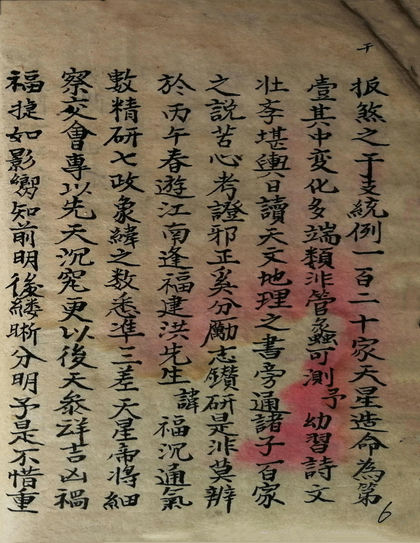 干
扳煞之干支統例一百二十家天星造命為第
壹其中变化多端類非管蠡可測予幼習詩文
壮李堪輿日讀天文地理之書旁通諸子百家
之説苦心考證邪正奚分勵志鑽研是非莫辨
於丙午春遊江南逢福建洪先生諱福沉通氣
數精研七政象緯之数悉準三差天星帝將細
察交會專以先天沉究更以後天叅詳吉凶禍
福捷如影嚮知前明後縷晰分明予是不惜重
6